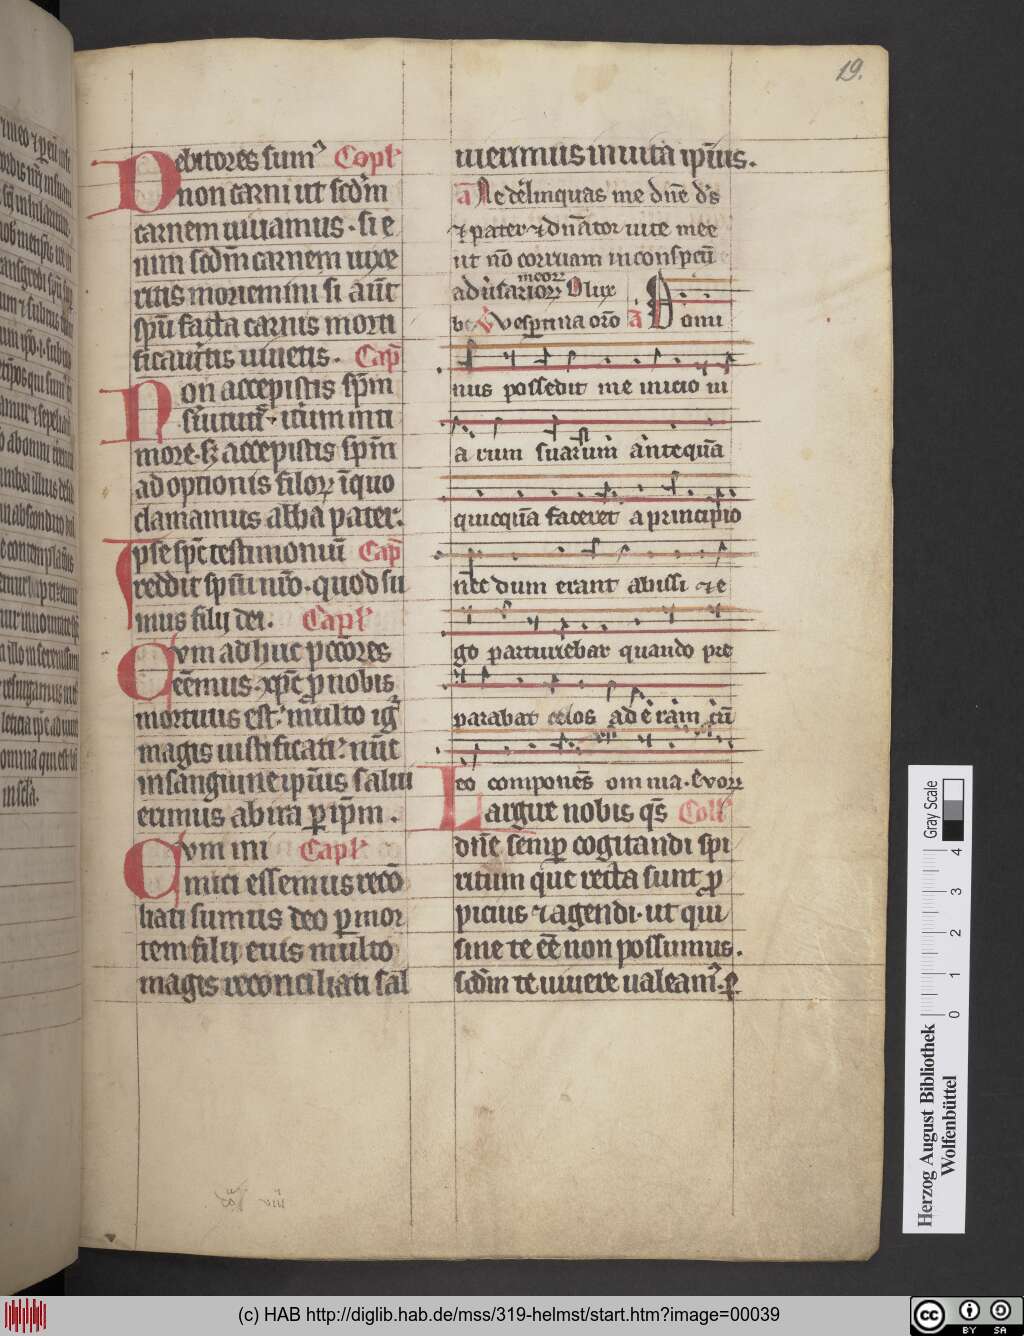 19.
Debitores sumꝰ Capl'
non carni ut scd'm
carnem uiuamus · si e
nim scd'm carnem uixe
ritis moriemini si aūt
spū facta carnis morti
ficau'itis uiuetis · Cap̄
Non accepistis sp̄m
s'uitutꝭ · it'um in ti
more · sꝫ accepistis sp̄m
adoptionis filioꝝ ī quo
clamamus abba pater·
Ipse sp̄c testimoniū Cap̄
reddit spūi nr̄o · quod su
mus filij dei. Capl'
Cvm adhuc pccōres
eēmus · xp̄c ꝓ nobis
mortuus est · multo igͥ
magis iustificati · nūc
in sanguine ipīus salui
erimus ab ira ꝑ ip̄m .
Cvm ini Capl'
mici essemus recō
liati sumus deo ꝑ mor
tem filij eius multo
magis reconciliati sal
uerimus in uita ipīus.
a͞ Ne derelinquas me dn̄e d's
⁊ pater ⁊ dn̄ator uite mee
ut nō corruam in conspectū
meoꝝ
aduersarioꝝ O lux
be V' Vespertina orō a͞ Domi
nus possedit me inicio ui
arum suarum antequā
quicquā faceret a principio
nec dum erant abissi ⁊ e
go parturiebar quando pre
parabat celos aderam cū
eo componēs omnia · Evoꝝ
Largire nobis q̄s Coll'
dn̄e semꝑ cogitandi spi
ritum que recta sunt ꝓ
picius ⁊ agendi · ut qui
sine te eē non possumus .
scd'm te uiuere ualeamꝰ · ꝑ
Gray Scale
0 1 2 3 4
Herzog August Bibliothek
Wolfenbüttel
(c) HAB http://diglib.hab.de/mss/319-helmst/start.htm?image=00039
cc BY SA